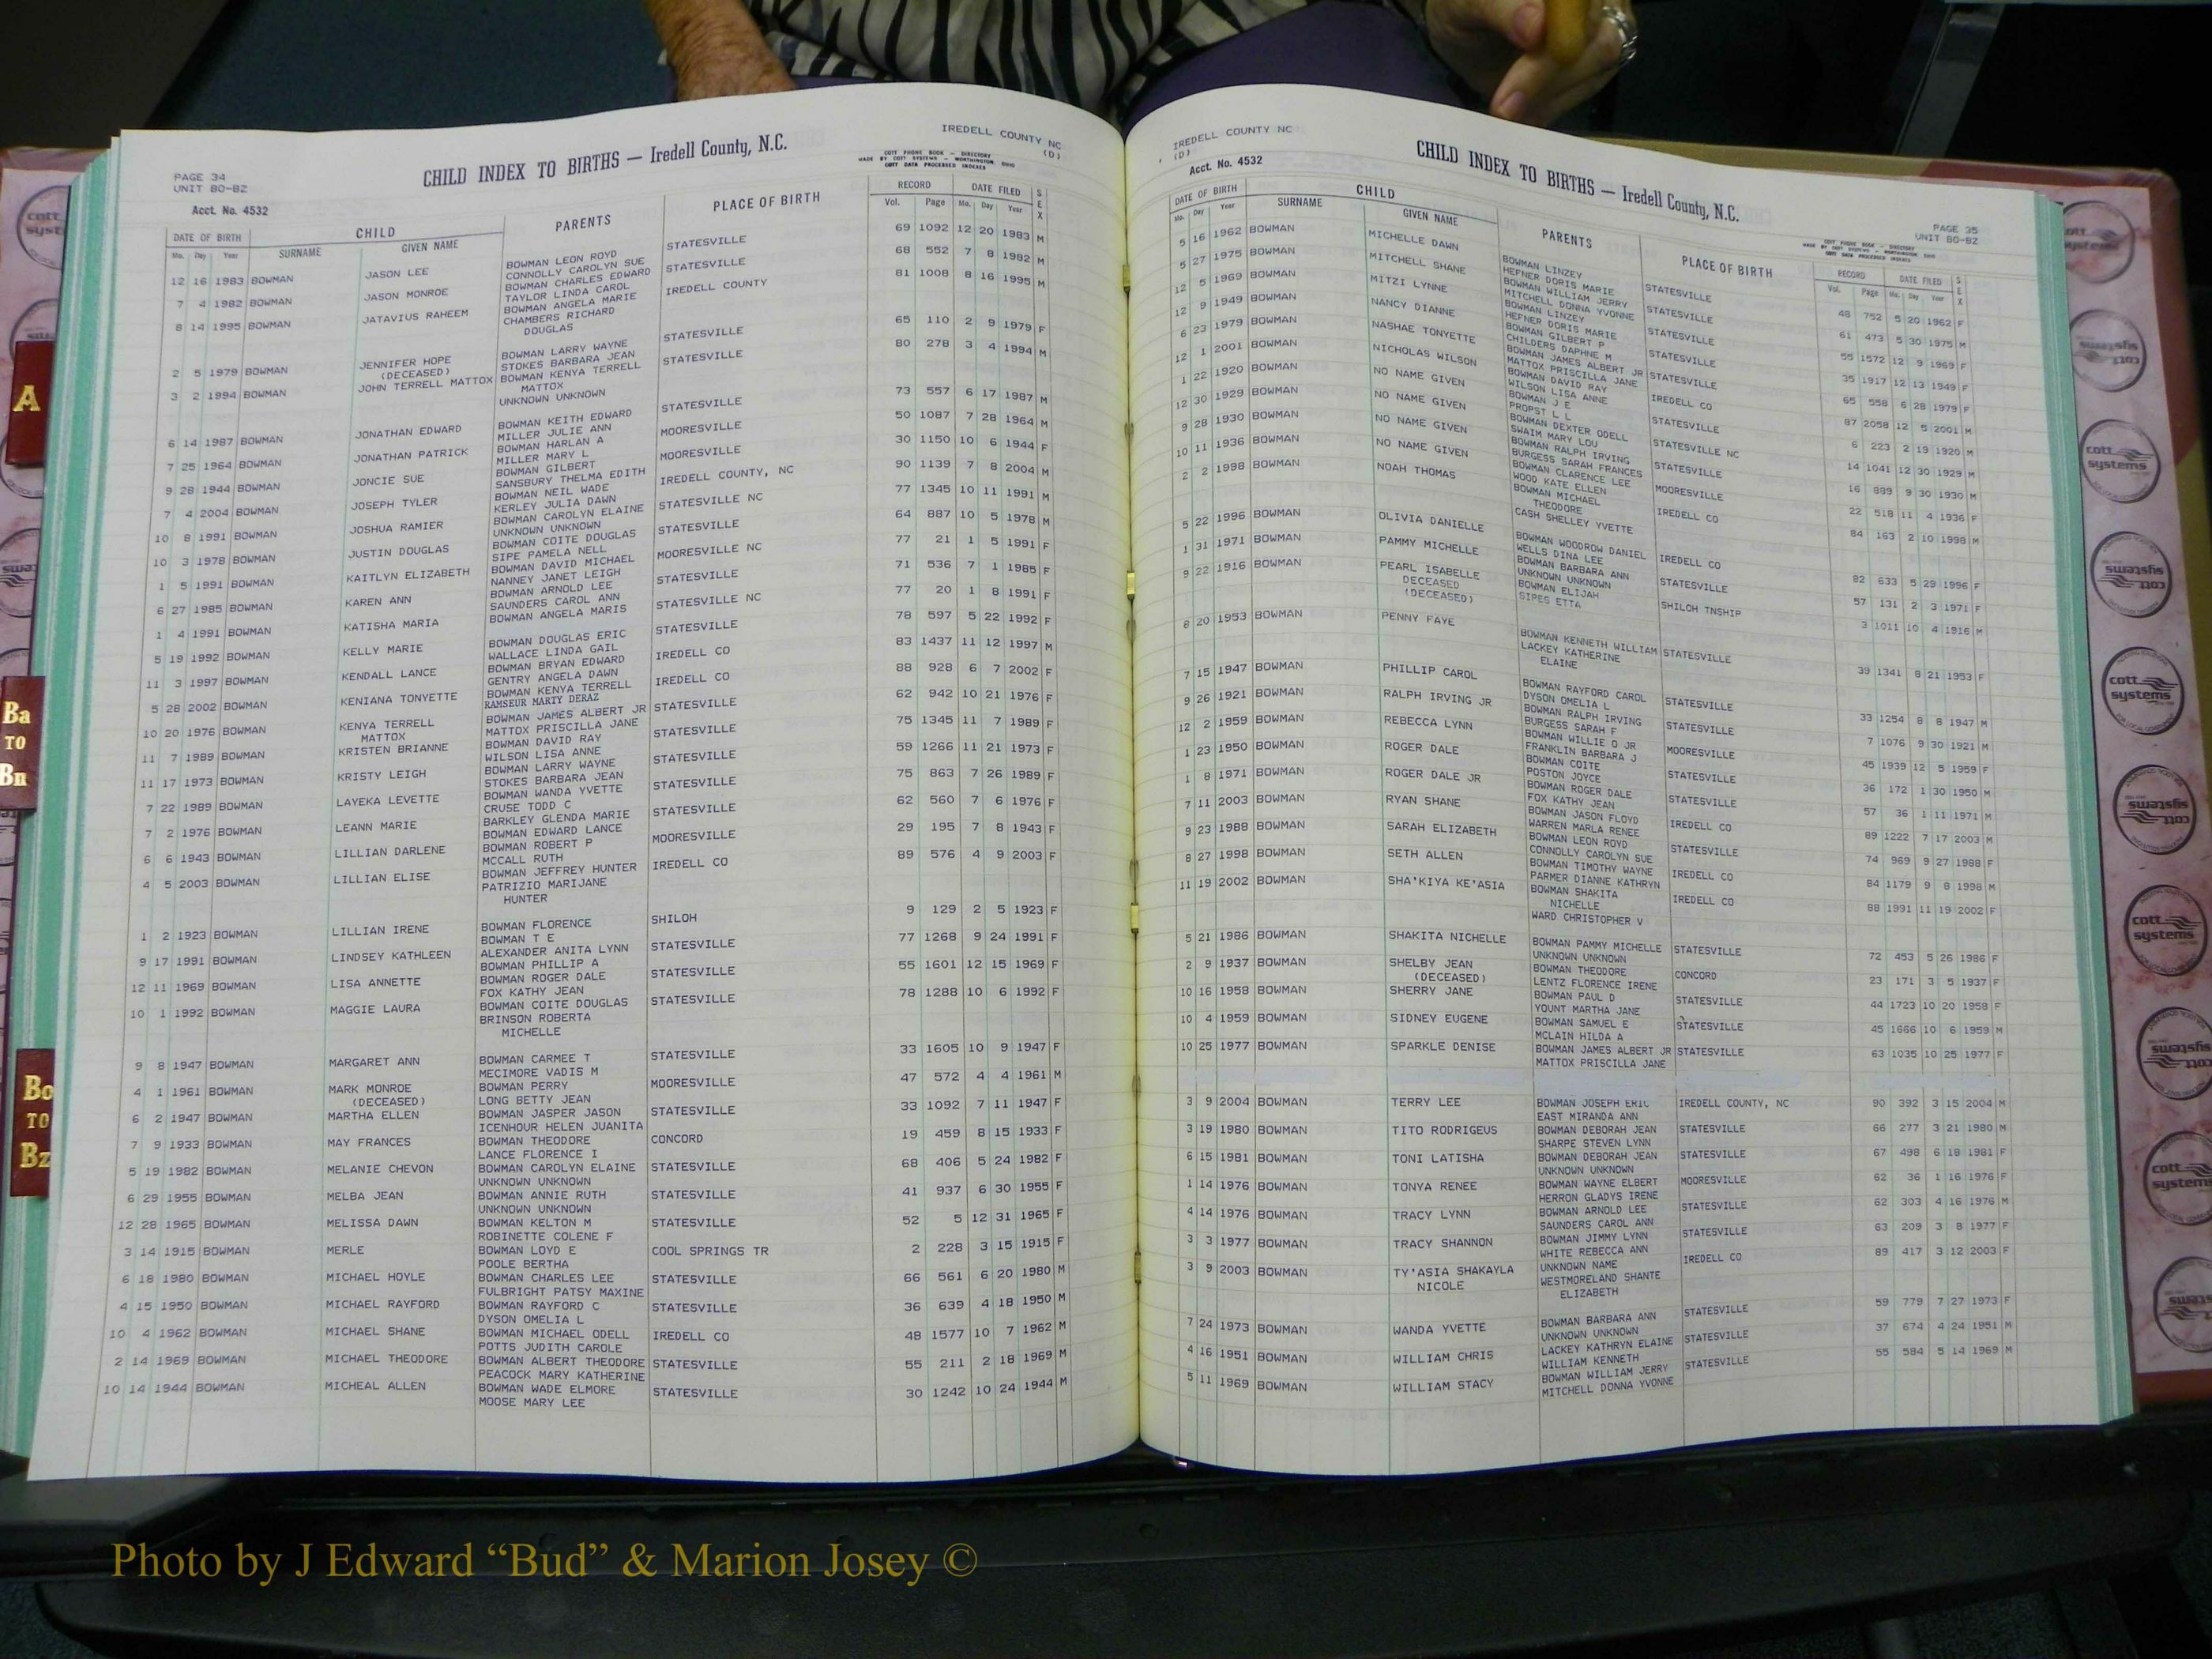 IREDELL COUNTY NC
(D)
CHILD INDEX TO BIRTHS — Iredell County, N.C.
COTT PHONE BOOK — DIRECTORY
MADE BY COTT SYSTEMS — WORTHINGTON, OHIO
COTT DATA PROCESSED INDEXES
PAGE 34
UNIT BO-BZ
Acct. No. 4532
DATE OF BIRTH CHILD PARENTS PLACE OF BIRTH RECORD DATE FILED SEX
Mo. Day Year SURNAME GIVEN NAME Vol. Page Mo. Day Year
12 16 1983 BOWMAN JASON LEE BOWMAN LEON ROYD STATESVILLE 69 1092 12 20 1983 M
CONNOLLY CAROLYN SUE
7 4 1982 BOWMAN JASON MONROE BOWMAN CHARLES EDWARD STATESVILLE 68 552 7 8 1982 M
TAYLOR LINDA CAROL
8 14 1995 BOWMAN JATAVIUS RAHEEM BOWMAN ANGELA MARIE IREDELL COUNTY 81 1008 8 16 1995 M
CHAMBERS RICHARD
DOUGLAS
2 5 1979 BOWMAN JENNIFER HOPE BOWMAN LARRY WAYNE STATESVILLE 65 110 2 9 1979 F
(DECEASED) STOKES BARBARA JEAN
3 2 1994 BOWMAN JOHN TERRELL MATTOX BOWMAN KENYA TERRELL STATESVILLE 80 278 3 4 1994 M
MATTOX
UNKNOWN UNKNOWN
6 14 1987 BOWMAN JONATHAN EDWARD BOWMAN KEITH EDWARD STATESVILLE 73 557 6 17 1987 M
MILLER JULIE ANN
7 25 1964 BOWMAN JONATHAN PATRICK BOWMAN HARLAN A MOORESVILLE 50 1087 7 28 1964 M
MILLER MARY L
9 28 1944 BOWMAN JONCIE SUE BOWMAN GILBERT MOORESVILLE 30 1150 10 6 1944 F
SANSBURY THELMA EDITH
7 4 2004 BOWMAN JOSEPH TYLER BOWMAN NEIL WADE IREDELL COUNTY, NC 90 1139 7 8 2004 M
KERLEY JULIA DAWN
10 8 1991 BOWMAN JOSHUA RAMIER BOWMAN CAROLYN ELAINE STATESVILLE NC 77 1345 10 11 1991 M
UNKNOWN UNKNOWN
10 3 1978 BOWMAN JUSTIN DOUGLAS BOWMAN COITE DOUGLAS STATESVILLE 64 887 10 5 1978 M
SIPE PAMELA NELL
1 5 1991 BOWMAN KAITLYN ELIZABETH BOWMAN DAVID MICHAEL MOORESVILLE NC 77 21 1 5 1991 F
NANNEY JANET LEIGH
6 27 1985 BOWMAN KAREN ANN BOWMAN ARNOLD LEE STATESVILLE 71 536 7 1 1985 F
SAUNDERS CAROL ANN
1 4 1991 BOWMAN KATISHA MARIA BOWMAN ANGELA MARIS STATESVILLE NC 77 20 1 8 1991 F
5 19 1992 BOWMAN KELLY MARIE BOWMAN DOUGLAS ERIC STATESVILLE 78 597 5 22 1992 F
WALLACE LINDA GAIL
11 3 1997 BOWMAN KENDALL LANCE BOWMAN BRYAN EDWARD IREDELL CO 83 1437 11 12 1997 M
GENTRY ANGELA DAWN
5 28 2002 BOWMAN KENIANA TONYETTE BOWMAN KENYA TERRELL IREDELL CO 88 928 6 7 2002 F
RAMSEUR MARTY DERAZ
10 20 1976 BOWMAN KENYA TERRELL BOWMAN JAMES ALBERT JR STATESVILLE 62 942 10 21 1976 F
MATTOX MATTOX PRISCILLA JANE
11 7 1989 BOWMAN KRISTEN BRIANNE BOWMAN DAVID RAY STATESVILLE 75 1345 11 7 1989 F
WILSON LISA ANNE
11 17 1973 BOWMAN KRISTY LEIGH BOWMAN LARRY WAYNE STATESVILLE 59 1266 11 21 1973 F
STOKES BARBARA JEAN
7 22 1989 BOWMAN LAYEKA LEVETTE BOWMAN WANDA YVETTE STATESVILLE 75 863 7 26 1989 F
CRUSE TODD C
7 2 1976 BOWMAN LEANN MARIE BARKLEY GLENDA MARIE STATESVILLE 62 560 7 6 1976 F
BOWMAN EDWARD LANCE
6 6 1943 BOWMAN LILLIAN DARLENE BOWMAN ROBERT P MOORESVILLE 29 195 7 8 1943 F
MCCALL RUTH
4 5 2003 BOWMAN LILLIAN ELISE BOWMAN JEFFREY HUNTER IREDELL CO 89 576 4 9 2003 F
PATRIZIO MARIJANE
HUNTER
1 2 1923 BOWMAN LILLIAN IRENE BOWMAN FLORENCE SHILOH 9 129 2 5 1923 F
BOWMAN T E
9 17 1991 BOWMAN LINDSEY KATHLEEN ALEXANDER ANITA LYNN STATESVILLE 77 1268 9 24 1991 F
BOWMAN PHILLIP A
12 11 1969 BOWMAN LISA ANNETTE BOWMAN ROGER DALE STATESVILLE 55 1601 12 15 1969 F
FOX KATHY JEAN
10 1 1992 BOWMAN MAGGIE LAURA BOWMAN COITE DOUGLAS STATESVILLE 78 1288 10 6 1992 F
BRINSON ROBERTA
MICHELLE
9 8 1947 BOWMAN MARGARET ANN BOWMAN CARMEE T STATESVILLE 33 1605 10 9 1947 F
MECIMORE VADIS M
4 1 1961 BOWMAN MARK MONROE BOWMAN PERRY MOORESVILLE 47 572 4 4 1961 M
(DECEASED) LONG BETTY JEAN
6 2 1947 BOWMAN MARTHA ELLEN BOWMAN JASPER JASON STATESVILLE 33 1092 7 11 1947 F
ICENHOUR HELEN JUANITA
7 9 1933 BOWMAN MAY FRANCES BOWMAN THEODORE CONCORD 19 459 8 15 1933 F
LANCE FLORENCE I
5 19 1982 BOWMAN MELANIE CHEVON BOWMAN CAROLYN ELAINE STATESVILLE 68 406 5 24 1982 F
UNKNOWN UNKNOWN
6 29 1955 BOWMAN MELBA JEAN BOWMAN ANNIE RUTH STATESVILLE 41 937 6 30 1955 F
UNKNOWN UNKNOWN
12 28 1965 BOWMAN MELISSA DAWN BOWMAN KELTON M STATESVILLE 52 5 12 31 1965 F
ROBINETTE COLENE F
3 14 1915 BOWMAN MERLE BOWMAN LOYD E COOL SPRINGS TR 2 228 3 15 1915 F
POOLE BERTHA
6 18 1980 BOWMAN MICHAEL HOYLE BOWMAN CHARLES LEE STATESVILLE 66 561 6 20 1980 M
FULBRIGHT PATSY MAXINE
4 15 1950 BOWMAN MICHAEL RAYFORD BOWMAN RAYFORD C STATESVILLE 36 639 4 18 1950 M
DYSON OMELIA L
10 4 1962 BOWMAN MICHAEL SHANE BOWMAN MICHAEL ODELL IREDELL CO 48 1577 10 7 1962 M
POTTS JUDITH CAROLE
2 14 1969 BOWMAN MICHAEL THEODORE BOWMAN ALBERT THEODORE STATESVILLE 55 211 2 18 1969 M
PEACOCK MARY KATHERINE
10 14 1944 BOWMAN MICHEAL ALLEN BOWMAN WADE ELMORE STATESVILLE 30 1242 10 24 1944 M
MOOSE MARY LEE
IREDELL COUNTY NC
(D)
Acct. No. 4532
CHILD INDEX TO BIRTHS — Iredell County, N.C.
PAGE 35
UNIT BO-BZ
COTT PHONE BOOK — DIRECTORY
MADE BY COTT SYSTEMS — WORTHINGTON, OHIO
COTT DATA PROCESSED INDEXES
DATE OF BIRTH CHILD PARENTS PLACE OF BIRTH RECORD DATE FILED SEX
Mo. Day Year SURNAME GIVEN NAME Vol. Page Mo. Day Year
5 16 1962 BOWMAN MICHELLE DAWN BOWMAN LINZEY STATESVILLE 48 752 5 20 1962 F
HEFNER DORIS MARIE
5 27 1975 BOWMAN MITCHELL SHANE BOWMAN WILLIAM JERRY STATESVILLE 61 473 5 30 1975 M
MITCHELL DONNA YVONNE
12 5 1969 BOWMAN MITZI LYNNE BOWMAN LINZEY STATESVILLE 55 1572 12 9 1969 F
HEFNER DORIS MARIE
12 9 1949 BOWMAN NANCY DIANNE BOWMAN GILBERT P STATESVILLE 35 1917 12 13 1949 F
CHILDERS DAPHNE M
6 23 1979 BOWMAN NASHAE TONYETTE BOWMAN JAMES ALBERT JR IREDELL CO 65 558 6 28 1979 F
MATTOX PRISCILLA JANE
12 1 2001 BOWMAN NICHOLAS WILSON BOWMAN DAVID RAY STATESVILLE 87 2058 12 5 2001 M
WILSON LISA ANNE
1 22 1920 BOWMAN NO NAME GIVEN BOWMAN J E STATESVILLE NC 6 223 2 19 1920 M
PROPST L L
12 30 1929 BOWMAN NO NAME GIVEN BOWMAN DEXTER ODELL STATESVILLE 14 1041 12 30 1929 M
SWAIM MARY LOU
9 28 1930 BOWMAN NO NAME GIVEN BOWMAN RALPH IRVING MOORESVILLE 16 889 9 30 1930 M
BURGESS SARAH FRANCES
10 11 1936 BOWMAN NO NAME GIVEN BOWMAN CLARENCE LEE IREDELL CO 22 518 11 4 1936 F
WOOD KATE ELLEN
2 2 1998 BOWMAN NOAH THOMAS BOWMAN MICHAEL 84 163 2 10 1998 M
THEODORE
CASH SHELLEY YVETTE
5 22 1996 BOWMAN OLIVIA DANIELLE BOWMAN WOODROW DANIEL IREDELL CO 82 633 5 29 1996 F
WELLS DINA LEE
1 31 1971 BOWMAN PAMMY MICHELLE BOWMAN BARBARA ANN STATESVILLE 57 131 2 3 1971 F
UNKNOWN UNKNOWN
9 22 1916 BOWMAN PEARL ISABELLE BOWMAN ELIJAH SHILOH TNSHIP 3 1011 10 4 1916 M
DECEASED SIPES ETTA
(DECEASED)
8 20 1953 BOWMAN PENNY FAYE BOWMAN KENNETH WILLIAM STATESVILLE 39 1341 8 21 1953 F
LACKEY KATHERINE
ELAINE
7 15 1947 BOWMAN PHILLIP CAROL BOWMAN RAYFORD CAROL STATESVILLE 33 1254 8 8 1947 M
DYSON OMELIA L
9 26 1921 BOWMAN RALPH IRVING JR BOWMAN RALPH IRVING STATESVILLE 7 1076 9 30 1921 M
BURGESS SARAH F
12 2 1959 BOWMAN REBECCA LYNN BOWMAN WILLIE O JR MOORESVILLE 45 1939 12 5 1959 F
FRANKLIN BARBARA J
1 23 1950 BOWMAN ROGER DALE BOWMAN COITE STATESVILLE 36 172 1 30 1950 M
POSTON JOYCE
1 8 1971 BOWMAN ROGER DALE JR BOWMAN ROGER DALE STATESVILLE 57 36 1 11 1971 M
FOX KATHY JEAN
7 11 2003 BOWMAN RYAN SHANE BOWMAN JASON FLOYD IREDELL CO 89 1222 7 17 2003 M
WARREN MARLA RENEE
9 23 1988 BOWMAN SARAH ELIZABETH BOWMAN LEON ROYD STATESVILLE 74 969 9 27 1988 F
CONNOLLY CAROLYN SUE
8 27 1998 BOWMAN SETH ALLEN BOWMAN TIMOTHY WAYNE IREDELL CO 84 1179 9 8 1998 M
PARMER DIANNE KATHRYN
11 19 2002 BOWMAN SHA'KIYA KE'ASIA BOWMAN SHAKITA IREDELL CO 88 1991 11 19 2002 F
NICHELLE
WARD CHRISTOPHER V
5 21 1986 BOWMAN SHAKITA NICHELLE BOWMAN PAMMY MICHELLE STATESVILLE 72 453 5 26 1986 F
UNKNOWN UNKNOWN
2 9 1937 BOWMAN SHELBY JEAN BOWMAN THEODORE CONCORD 23 171 3 5 1937 F
(DECEASED) LENTZ FLORENCE IRENE
10 16 1958 BOWMAN SHERRY JANE BOWMAN PAUL D STATESVILLE 44 1723 10 20 1958 F
YOUNT MARTHA JANE
10 4 1959 BOWMAN SIDNEY EUGENE BOWMAN SAMUEL E STATESVILLE 45 1666 10 6 1959 M
MCLAIN HILDA A
10 25 1977 BOWMAN SPARKLE DENISE BOWMAN JAMES ALBERT JR STATESVILLE 63 1035 10 25 1977 F
MATTOX PRISCILLA JANE
3 9 2004 BOWMAN TERRY LEE BOWMAN JOSEPH ERIC IREDELL COUNTY, NC 90 392 3 15 2004 M
EAST MIRANDA ANN
3 19 1980 BOWMAN TITO RODRIGEUS BOWMAN DEBORAH JEAN STATESVILLE 66 277 3 21 1980 M
SHARPE STEVEN LYNN
6 15 1981 BOWMAN TONI LATISHA BOWMAN DEBORAH JEAN STATESVILLE 67 498 6 18 1981 F
UNKNOWN UNKNOWN
1 14 1976 BOWMAN TONYA RENEE BOWMAN WAYNE ELBERT MOORESVILLE 62 36 1 16 1976 F
HERRON GLADYS IRENE
4 14 1976 BOWMAN TRACY LYNN BOWMAN ARNOLD LEE STATESVILLE 62 303 4 16 1976 M
SAUNDERS CAROL ANN
3 3 1977 BOWMAN TRACY SHANNON BOWMAN JIMMY LYNN STATESVILLE 63 209 3 8 1977 F
WHITE REBECCA ANN
3 9 2003 BOWMAN TY'ASIA SHAKAYLA UNKNOWN NAME IREDELL CO 89 417 3 12 2003 F
NICOLE WESTMORELAND SHANTE
ELIZABETH
7 24 1973 BOWMAN WANDA YVETTE BOWMAN BARBARA ANN STATESVILLE 59 779 7 27 1973 F
UNKNOWN UNKNOWN
4 16 1951 BOWMAN WILLIAM CHRIS LACKEY KATHRYN ELAINE STATESVILLE 37 674 4 24 1951 M
WILLIAM KENNETH
5 11 1969 BOWMAN WILLIAM STACY BOWMAN WILLIAM JERRY STATESVILLE 55 584 5 14 1969 M
MITCHELL DONNA YVONNE
A
Ba
TO
Bn
Bo
TO
Bz
cott
systems
Photo by J Edward “Bud” & Marion Josey ©